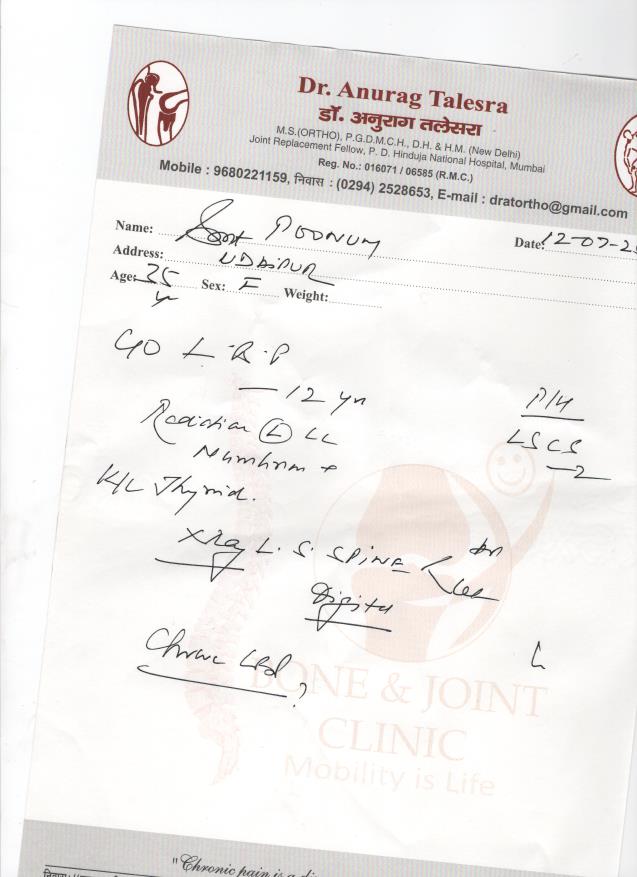 Dr. Anurag Talesra
डॉ. अनुराग तलेसरा
M.S.(ORTHO), P.G.D.M.C.H., D.H. & H.M. (New Delhi)
Joint Replacement Fellow, P. D. Hinduja National Hospital, Mumbai
Reg. No.: 016071 / 06585 (R.M.C.)
Mobile : 9680221159, निवास : (0294) 2528653, E-mail : dratortho@gmail.com
Name: POONUM
Date: 12-07-2
Address: UDAIPUR
Age: 35 yr Sex: F Weight:
C/O L.B.P
— 12 yr
Radiation (L) LL
Numbness +
K/C Thyroid.
P/H
LSCS
—2
Xray L. S. SPINE
Digital
BONE & JOINT
CLINIC
Mobility is Life
"Chronic pain is a di